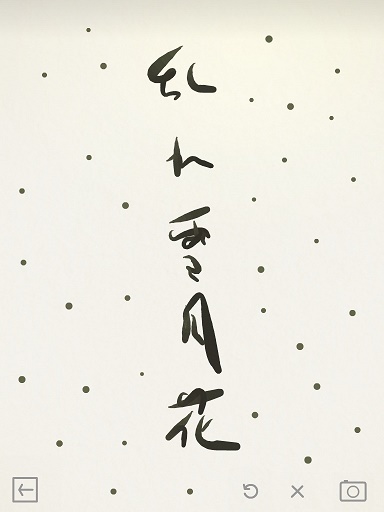 乱れ雪月花